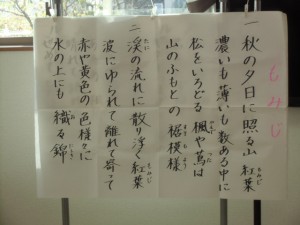 もみじ
一 秋の夕日に照る山 紅葉
濃いも薄いも数ある中に
松をいろどる 楓や蔦は
山のふもとの 裾模様
二 渓の流れに 散り浮く紅葉
波にゆられて 離れて寄って
赤や黄色の 色様々に
水の上にも 織る錦